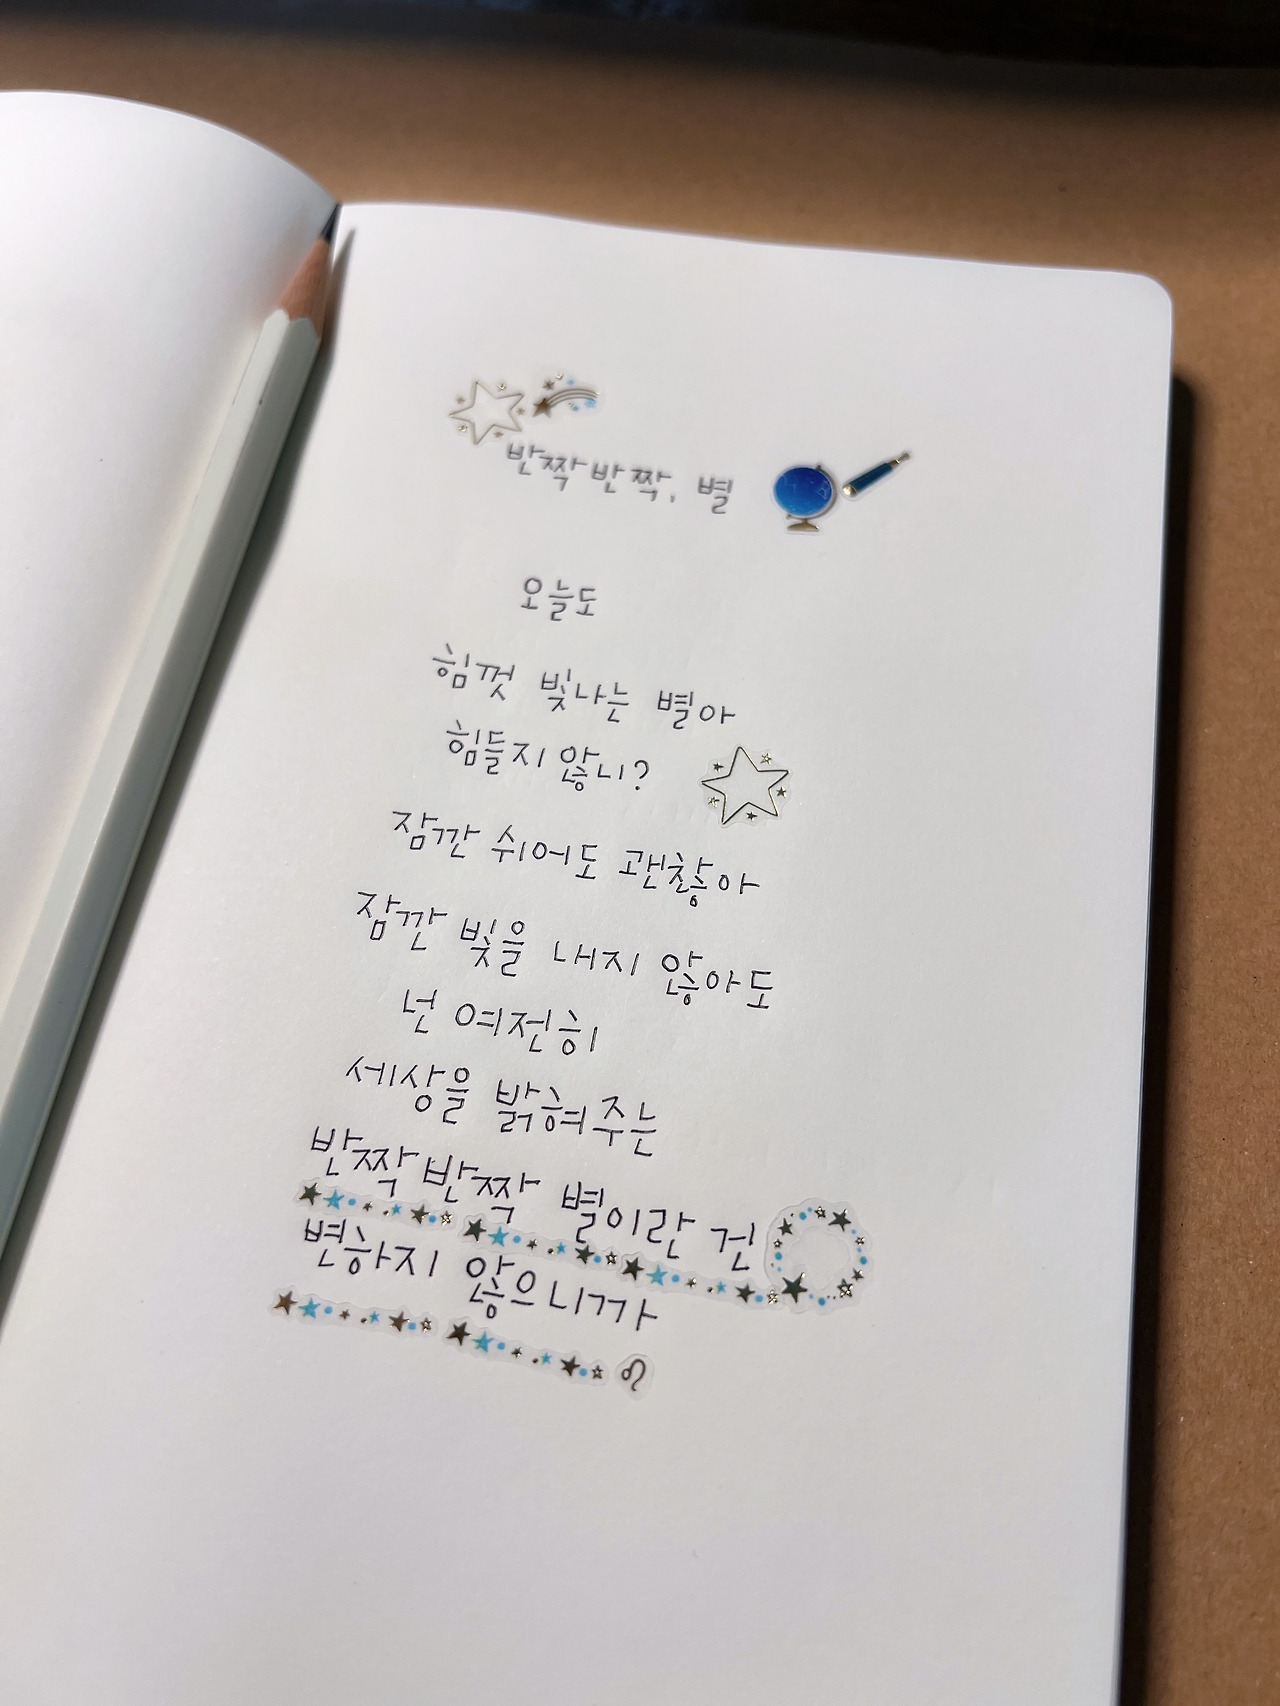 반짝반짝, 별
오늘도
힘껏 빛나는 별아
힘들지 않니?
잠깐 쉬어도 괜찮아
잠깐 빛을 내지 않아도
넌 여전히
세상을 밝혀주는
반짝반짝 별이란 건
변하지 않으니까